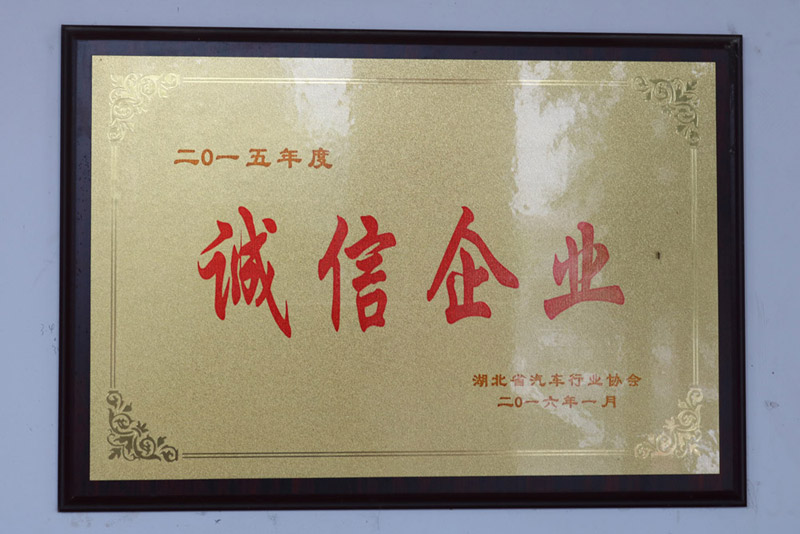 二0一五年度
诚信企业
湖北省汽车行业协会
二0一六年一月